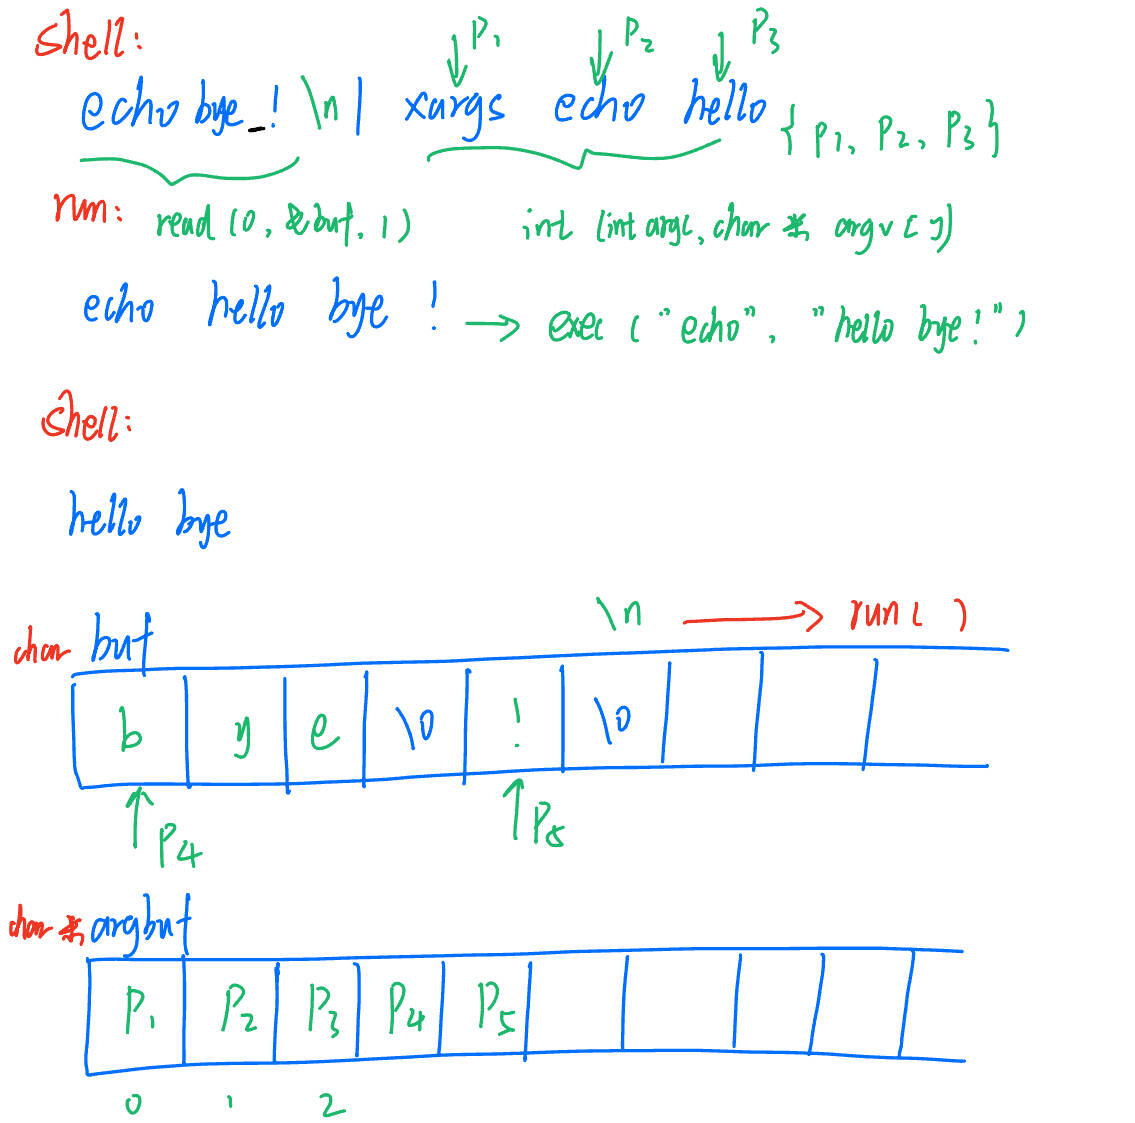 shell:
P1 P2 P3
echo bye_! \n | xargs echo hello { P1, P2, P3 }
run: read (0, &buf, 1) int (int argc, char * argv [])
echo hello bye ! → exec ( "echo", "hello bye!" )
shell:
hello bye
char buf \n → run( )
b y e \0 ! \0
P4 P5
char * argbuf
P1 P2 P3 P4 P5
0 1 2